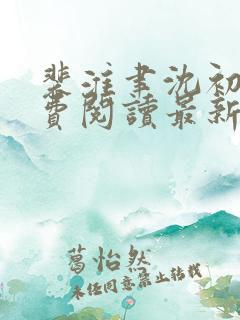 裴淮聿沈初
费阅读最新
葛怡然
未经同意禁止转载